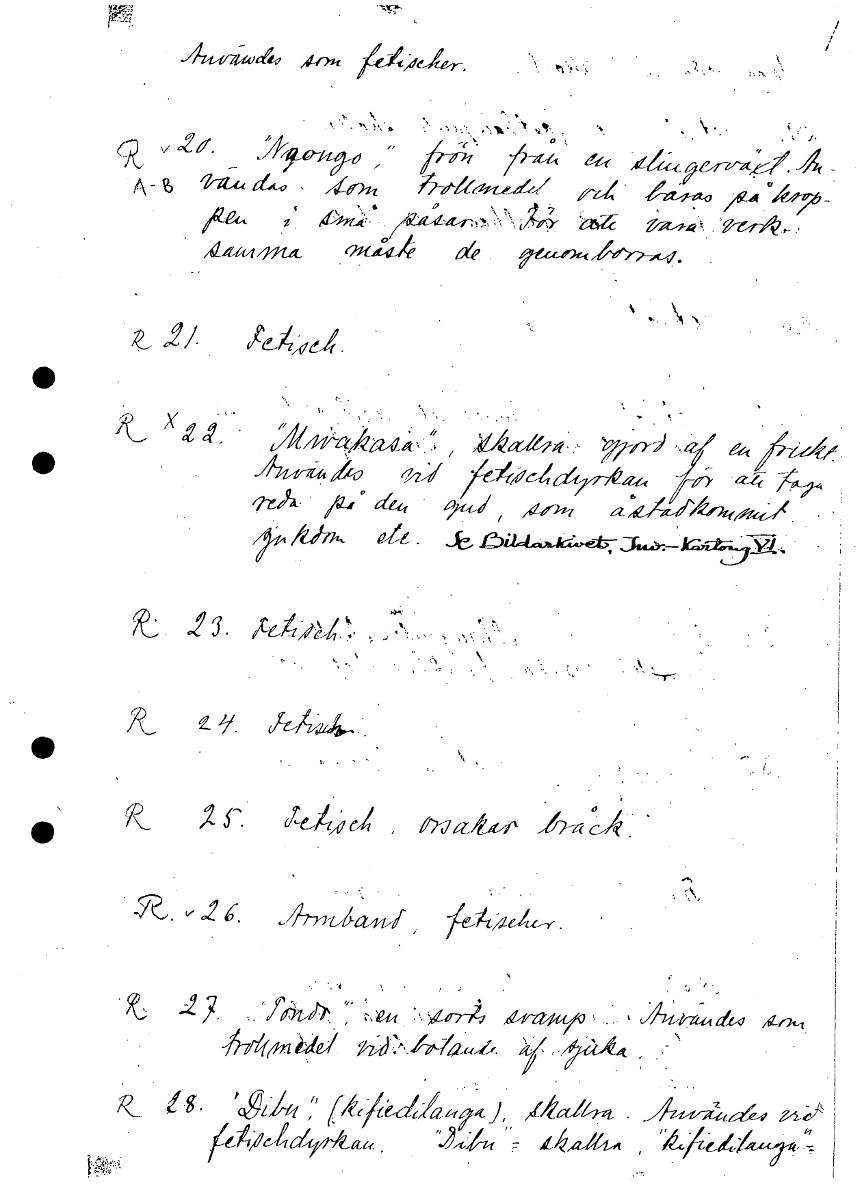 Användes som fetischer.
R v 20. "Ngongo," frön från en slingerväxt. An-
A-B vändas som trollmedel och bäras på krop-
pen i små påsar. För att vara verk-
samma måste de genomborras.
R 21. Fetisch.
R x 22. "Mwakasa", skallra gjord af en frukt.
Användes vid fetischdyrkan för att taga
reda på den gud, som åstadkommit
sjukdom etc. Se Bildarkivet, Inv.-Kartong VI.
R 23. Fetisch.
R 24. Fetisch
R 25. Fetisch, orsakar bråck.
R. v 26. Armband, fetischer.
R 27. "Tondo", en sorts svamp. Användes som
trollmedel vid botande af sjuka.
R 28. "Dibu", (kifiedilanga), skallra. Användes vid
fetischdyrkan. "Dibu" = skallra, "kifiedilanga" =